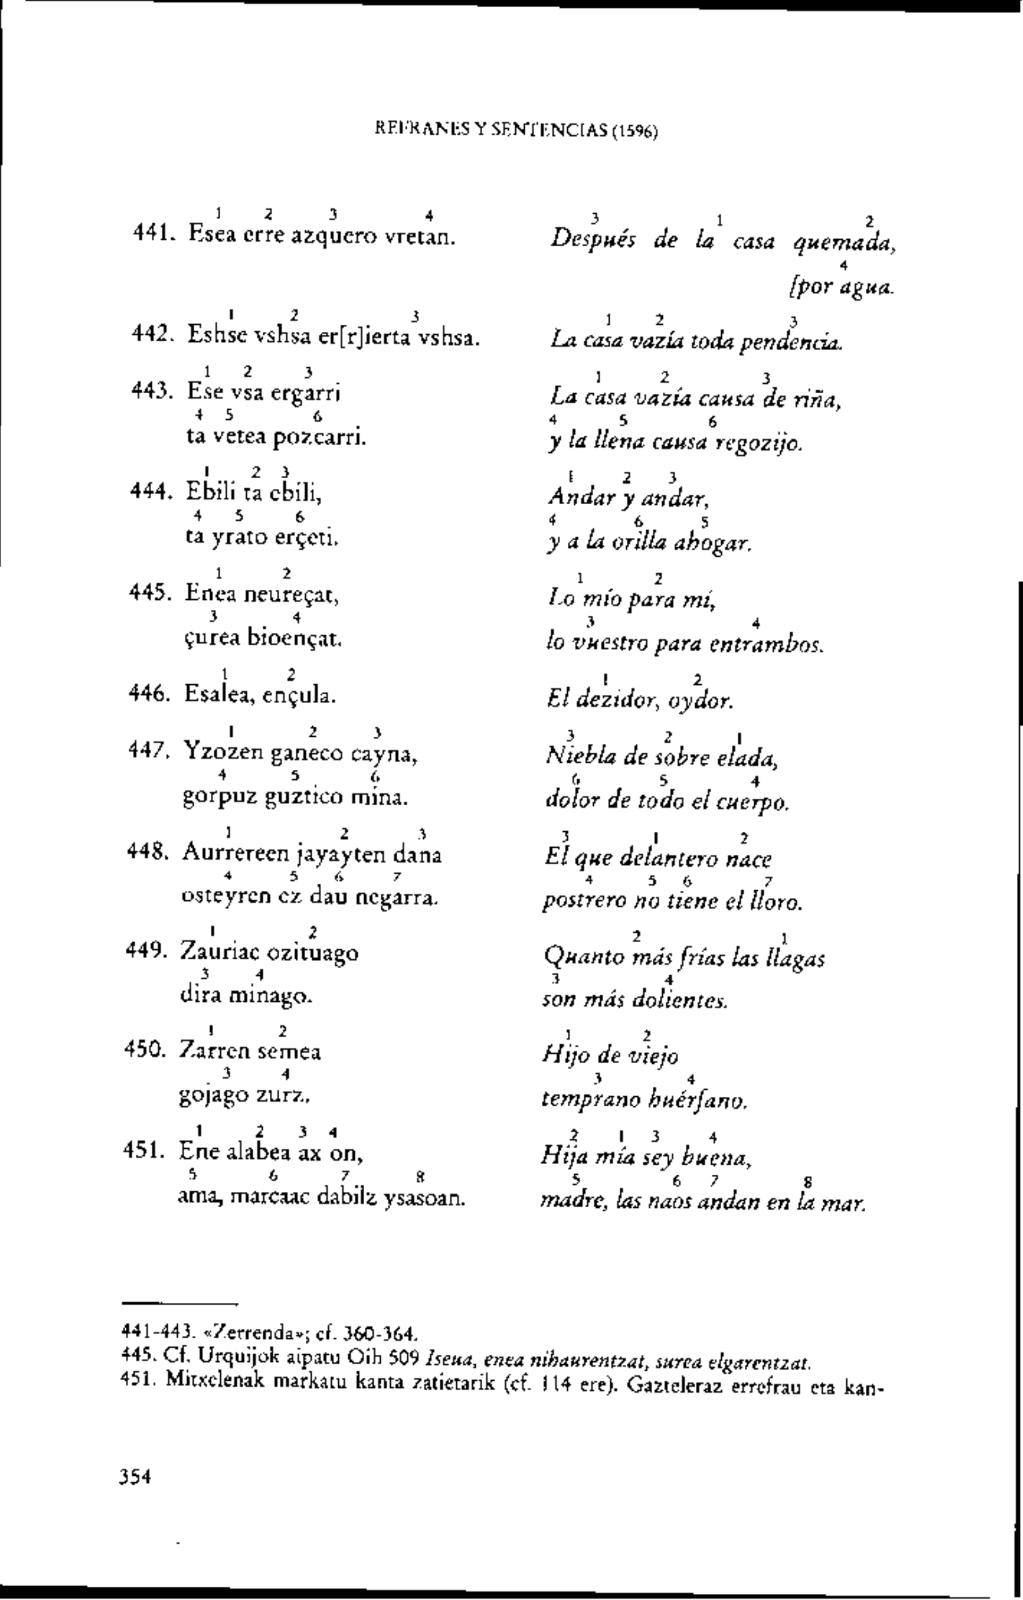 REFRANES Y SENTENCIAS (1596)
1 2 3 4
441. Esea erre azquero vretan.
3 1 2
Después de la casa quemada,
4
[por agua.
1 2 3
442. Eshse vshsa er[r]ierta vshsa.
1 2 3
La casa vazía toda pendencia.
1 2 3
443. Ese vsa ergarri
4 5 6
ta vetea pozcarri.
1 2 3
La casa vazía causa de riña,
4 5 6
y la llena causa regozijo.
1 2 3
444. Ebili ta ebili,
4 5 6
ta yrato erçeti.
1 2 3
Andar y andar,
4 6 5
y a la orilla ahogar.
1 2
445. Enea neureçat,
3 4
çurea bioençat.
1 2
Lo mío para mí,
3 4
lo vuestro para entrambos.
1 2
446. Esalea, ençula.
1 2
El dezidor, oydor.
1 2 3
447. Yzozen ganeco cayna,
4 5 6
gorpuz guztico mina.
3 2 1
Niebla de sobre elada,
6 5 4
dolor de todo el cuerpo.
1 2 3
448. Aurrereen jayayten dana
4 5 6 7
osteyren ez dau negarra.
3 1 2
El que delantero nace
4 5 6 7
postrero no tiene el lloro.
1 2
449. Zauriac ozituago
3 4
dira minago.
2 1
Quanto más frías las llagas
3 4
son más dolientes.
1 2
450. Zarren semea
3 4
gojago zurz.
1 2
Hijo de viejo
3 4
temprano huérfano.
1 2 3 4
451. Ene alabea ax on,
5 6 7 8
ama, marcaac dabilz ysasoan.
2 1 3 4
Hija mía sey buena,
5 6 7 8
madre, las naos andan en la mar.
441-443. «Zerrenda»; cf. 360-364.
445. Cf. Urquijok aipatu Oih 509 Iseua, enea nihaurentzat, surea elgarentzat.
451. Mitxelenak markatu kanta zatietarik (cf. 114 ere). Gazteleraz errefrau eta kan-
354